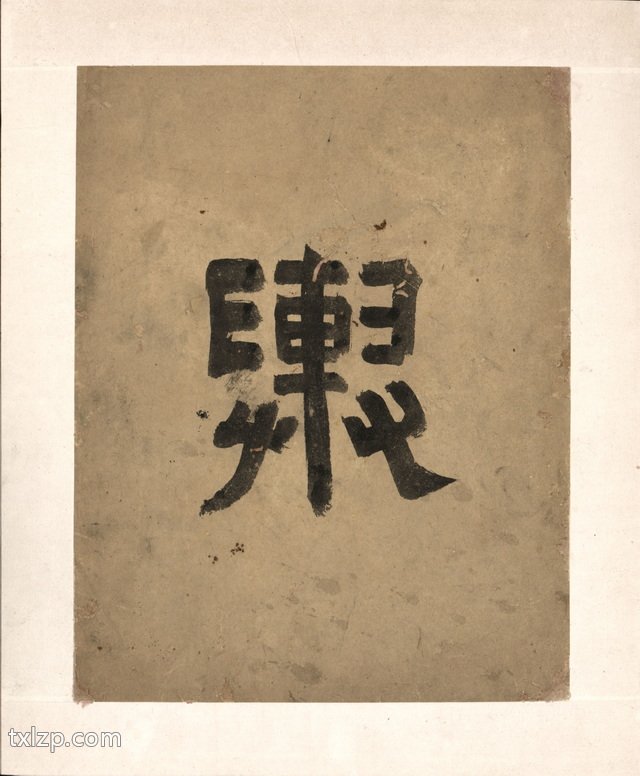 輿
txlzp.com